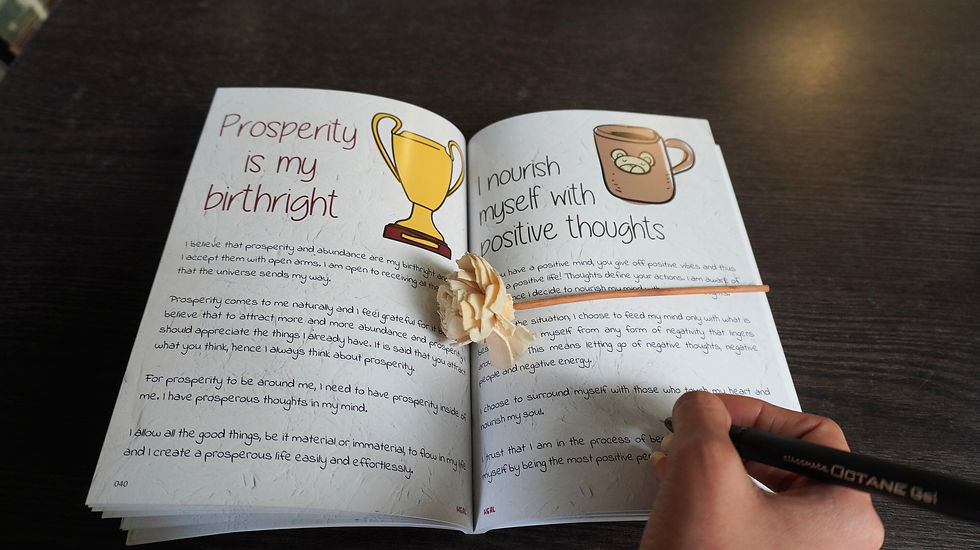 Prosperity
is my
birthright
I believe that prosperity and abundance are my birthright and
I accept them with open arms. I am open to receiving all the
that the universe sends my way.
Prosperity comes to me naturally and I feel grateful for it
believe that to attract more and more abundance and prosperity
should appreciate the things I already have. It is said that you attract
what you think, hence I always think about prosperity.
For prosperity to be around me, I need to have prosperity inside of
me. I have prosperous thoughts in my mind.
I allow all the good things, be it material or immaterial, to flow in my life
and I create a prosperous life easily and effortlessly.
040
I nourish
myself with
positive thoughts
you have a positive mind, you give off positive vibes and thus
a positive life! Thoughts define your actions. I am aware of
I decide to nourish my mind with
the situation, I choose to feed my mind only with what is
myself from any form of negativity that lingers
This means letting go of negative thoughts, negative
people and negative energy.
I choose to surround myself with those who touch my heart and
nourish my soul.
I trust that I am in the process of
myself by being the most positive
OCTANE Gel